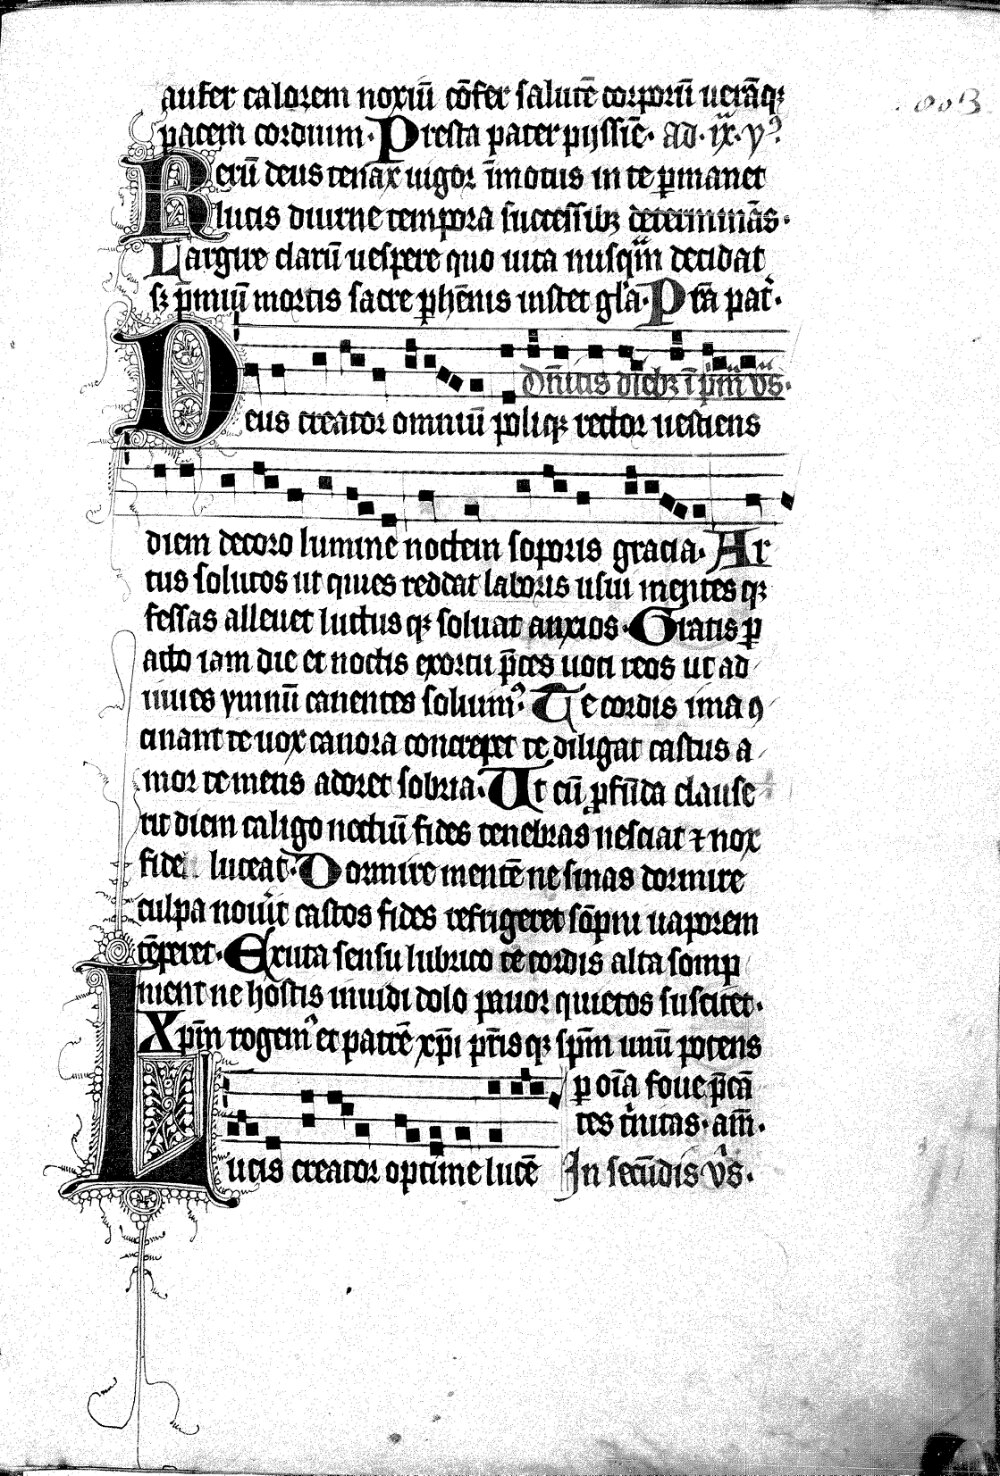 003
aufer calorem noxiū cōfer salutē corporū uerāqꝫ
pacem cordium. Presta pater pijssīe. ad. ix. yꝰ
Rerū deus tenax uigor īmotus in te ꝑmanet
lucis diurne tempora successibꝫ determinās.
Largire clarū uespere quo uita nusqͣm decidat
sꝫ p̄miū mortis sacre ꝑhēnis instet glͥa. Pͬta pat̄.
Dn̄icis diebꝫ ī pͥm̄ vs̄.
Deus creator omniū poliqꝫ rector uestiens
diem decoro lumine noctem soporis gracia. Ar
tus solutos ut quies reddat laboris usui mentes qꝫ
fessas alleuet luctus qꝫ soluat anxios. Gratis ꝑ
acto iam die et noctis exortu p̄ces uoti reos ut ad
iuues ymnū canentes soluimꝰ. Te cordis ima ꝯ
cinant te uox canora concrepet te diligat castus a
mor te mens adoret sobria. Ut cū ꝓfūda clause
rit diem caligo noctiū fides tenebras nesciat ⁊ nox
fide luceat. Dormire mentē ne sinas dormire
culpa nouͥit castos fides refrigeret sōpni uaporem
tēperet. Exuta sensu lubrico te cordis alta somp
nient ne hostis inuidi dolo pauor quietos suscitet.
Xpm̄ rogemꝰ et patrē xp̄i pr̄is qꝫ spm̄ unū potens
ꝑ oīa foue p̄cā
tes tͥnitas. am̄.
Lucis creator optime lucē In secūdis vs̄.